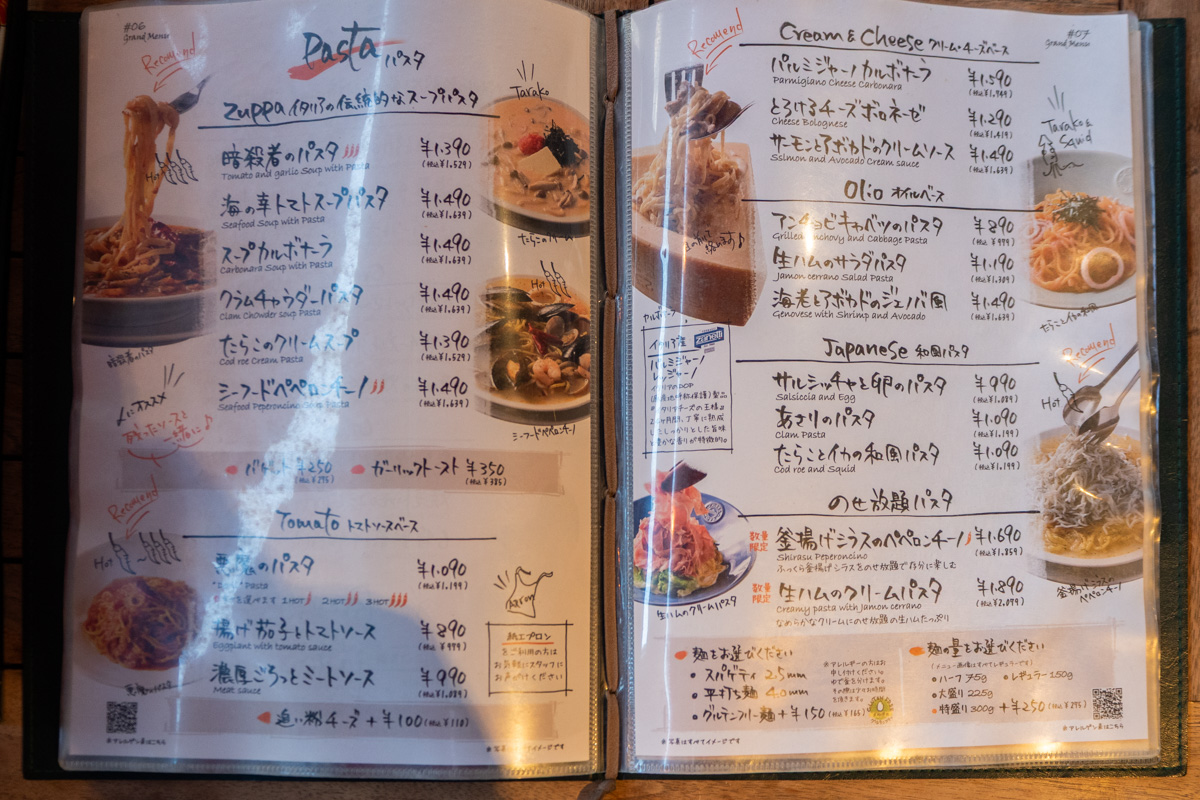 #06
Grand Menu
Recomend
Pasta パスタ
Zuppa イタリアの伝統的なスープパスタ
Hot
暗殺者のパスタ ¥1.390
Tomato and garlic Soup with Pasta (税込¥1.529)
海の幸トマトスープパスタ ¥1.490
Seafood Soup with Pasta (税込¥1.639)
スープカルボナーラ ¥1.490
Carbonara Soup with Pasta (税込¥1.639)
クラムチャウダーパスタ ¥1.490
Clam Chowder soup Pasta (税込¥1.639)
たらこのクリームスープ ¥1.390
Cod roe Cream Pasta (税込¥1.529)
シーフードペペロンチーノ ¥1.490
Seafood Peperoncino Soup Pasta (税込¥1.639)
Tarako
Hot
シーフードペペロンチーノ
暗殺者のパスタ
にオススメ
残ったソースと
一緒に♪
バゲット ¥250
(税込¥275)
ガーリックトースト ¥350
(税込¥385)
Recomend
Hot
Tomato トマトソースベース
悪魔のパスタ ¥1.090
Pasta (税込¥1.199)
1HOT 2HOT 3HOT
揚げ茄子とトマトソース ¥890
Eggplant with tomato sauce (税込¥979)
濃厚ごろっとミートソース ¥990
Meat sauce (税込¥1.089)
追い粉チーズ +¥100 (税込¥110)
紙エプロン
をご利用の方は
お気軽にスタッフに
お声がけください
※アレルゲン表はこちら
※写真はすべてイメージです
#07
Grand Menu
Recomend
Cream & Cheese クリーム・チーズベース
パルミジャーノカルボナーラ ¥1.590
Parmigiano Cheese Carbonara (税込¥1.749)
とろけるチーズボロネーゼ ¥1.290
Cheese Bolognese (税込¥1.419)
サーモンとアボカドのクリームソース ¥1.490
Sslmon and Avocado Cream sauce (税込¥1.639)
Tarako & Squid
Olio オイルベース
アンチョビキャベツのパスタ ¥890
Grilled Anchovy and Cabbage Pasta (税込¥979)
生ハムのサラダパスタ ¥1.190
Jamon cerrano Salad Pasta (税込¥1.309)
海老とアボカドのジェノバ風 ¥1.490
Genovese with Shrimp and Avocado (税込¥1.639)
たらことイカの和風
イタリア産
パルミジャーノ
レッジャーノ
Japanese 和風パスタ
サルシッチャと卵のパスタ ¥990
Salsiccia and Egg (税込¥1.089)
あさりのパスタ ¥1.090
Clam Pasta (税込¥1.199)
たらことイカの和風パスタ ¥1.090
Cod roe and Squid (税込¥1.199)
Recomend
Hot
のせ放題パスタ
数量限定 釜揚げシラスのペペロンチーノ ¥1.690
Shirasu Peperoncino (税込¥1.859)
ふっくら釜揚げシラスをのせ放題で存分に楽しむ
数量限定 生ハムのクリームパスタ ¥1.890
Creamy pasta with Jamon cerrano (税込¥2.079)
なめらかなクリームにのせ放題の生ハムたっぷり
生ハムのクリームパスタ
釜揚げシラスの
ペペロンチーノ
麺をお選びください
・スパゲティ 2.5mm
・平打ち麺 4.0mm
・グルテンフリー麺 +¥150 (税込¥165)
麺の量をお選びください
(メニュー画像はすべてレギュラーです)
・ハーフ 75g ・レギュラー 150g
・大盛り 225g
・特盛り 300g +¥250 (税込¥275)
※写真はすべてイメージです
※アレルゲン表はこちら